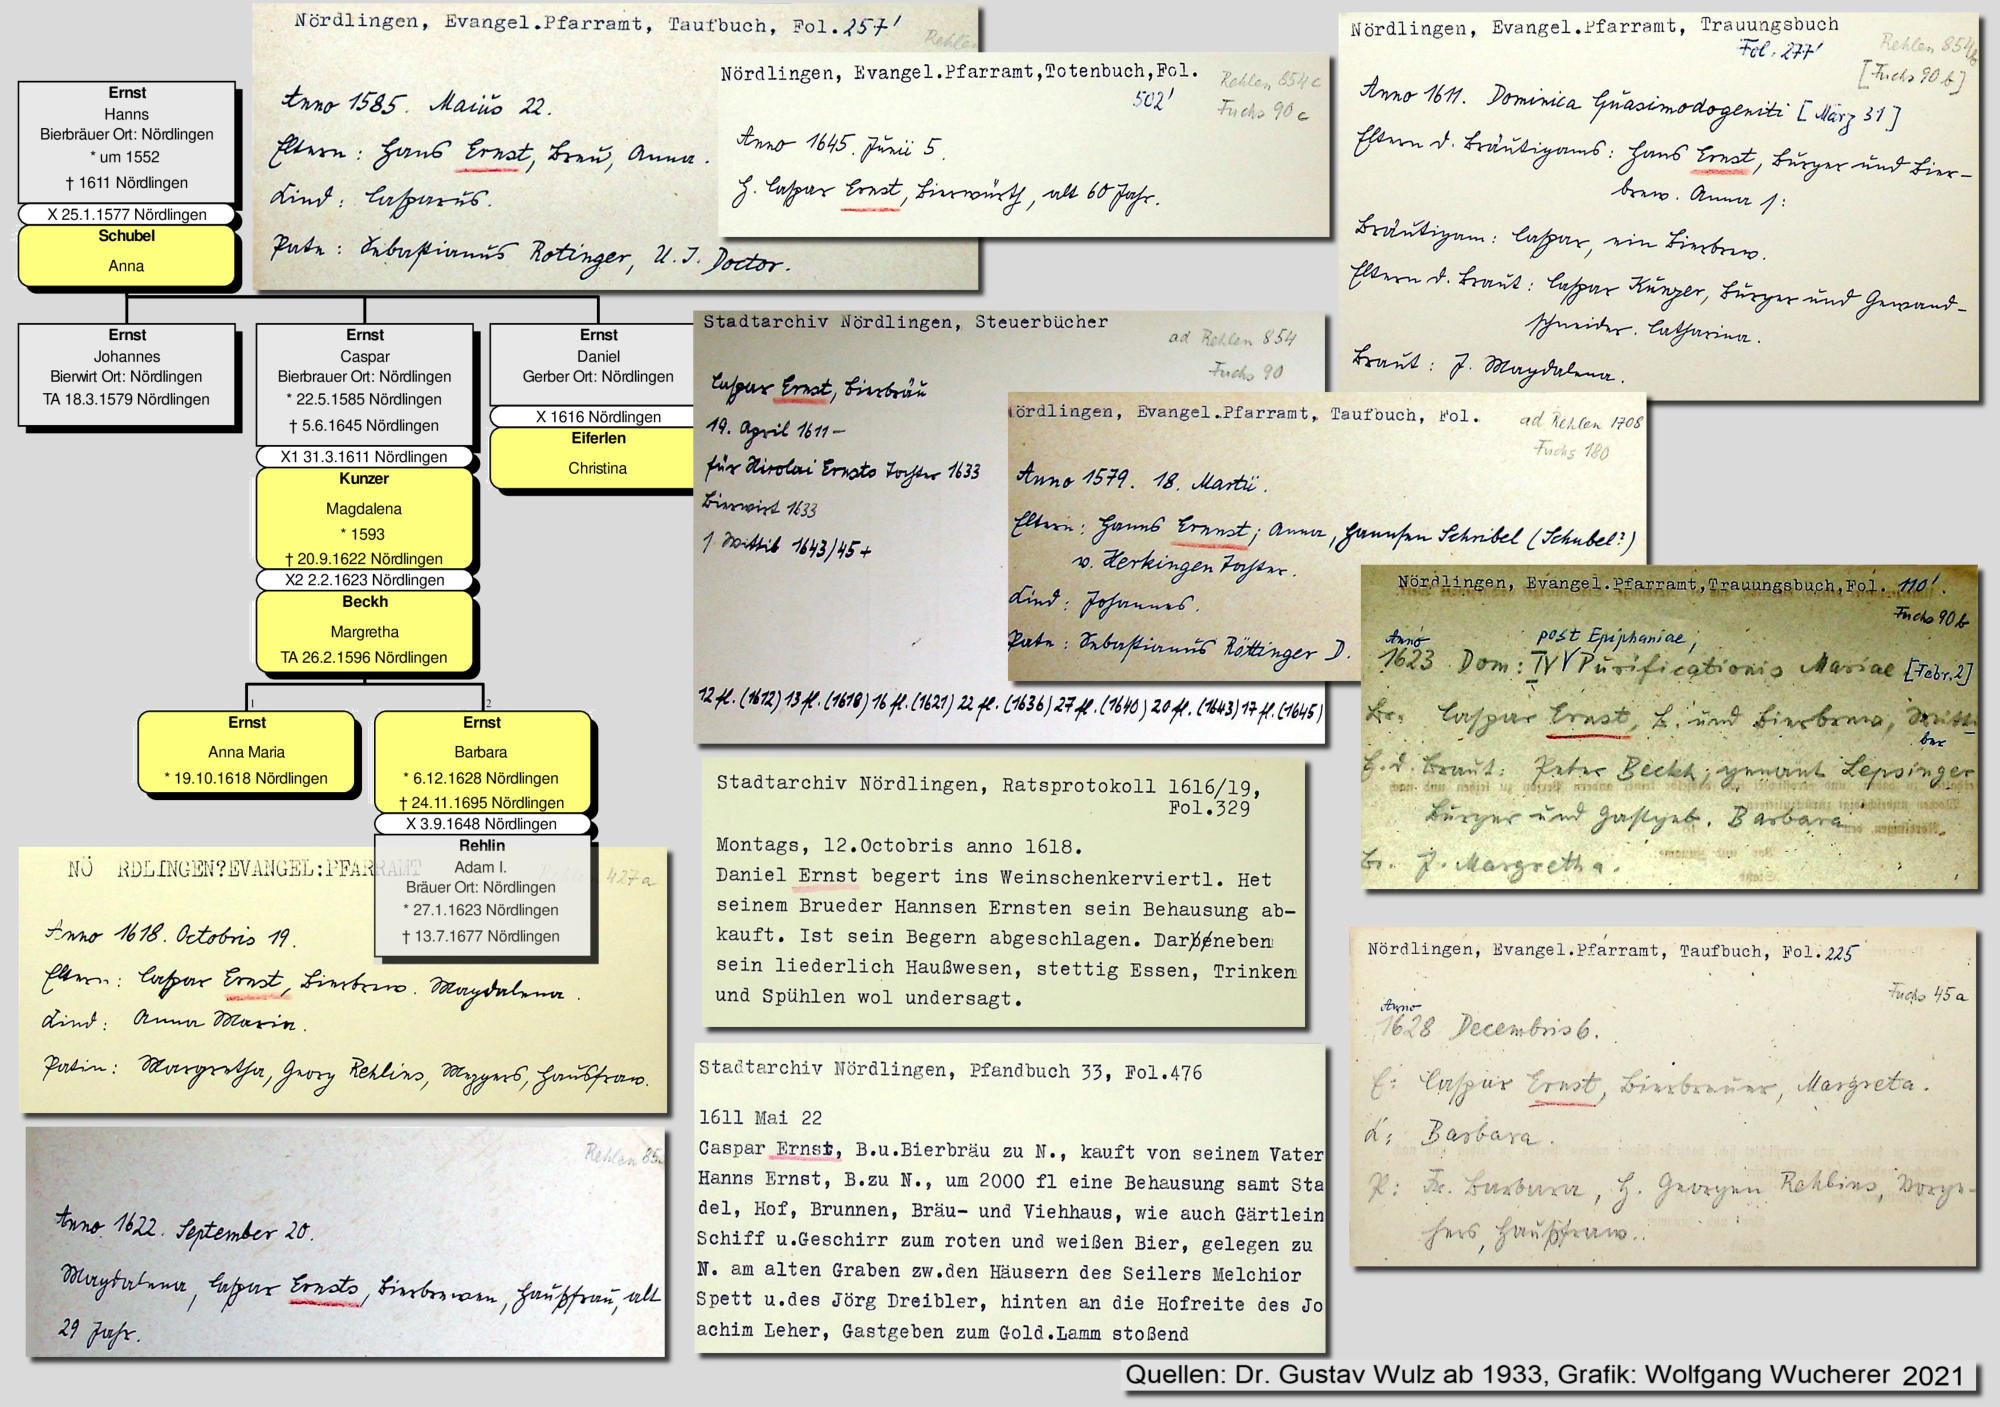 Ernst
Hanns
Bierbräuer Ort: Nördlingen
* um 1552
† 1611 Nördlingen
X 25.1.1577 Nördlingen
Schubel
Anna
Ernst
Johannes
Bierwirt Ort: Nördlingen
TA 18.3.1579 Nördlingen
Ernst
Caspar
Bierbrauer Ort: Nördlingen
* 22.5.1585 Nördlingen
† 5.6.1645 Nördlingen
X1 31.3.1611 Nördlingen
Kunzer
Magdalena
* 1593
† 20.9.1622 Nördlingen
X2 2.2.1623 Nördlingen
Beckh
Margretha
TA 26.2.1596 Nördlingen
Ernst
Daniel
Gerber Ort: Nördlingen
X 1616 Nördlingen
Eiferlen
Christina
1
Ernst
Anna Maria
* 19.10.1618 Nördlingen
2
Ernst
Barbara
* 6.12.1628 Nördlingen
† 24.11.1695 Nördlingen
X 3.9.1648 Nördlingen
Rehlin
Adam I.
Bräuer Ort: Nördlingen
* 27.1.1623 Nördlingen
† 13.7.1677 Nördlingen
Nördlingen, Evangel.Pfarramt, Taufbuch, Fol. 257'
Rehlen
Anno 1585. Maius 22.
Eltern: Hans Ernst, Breu, Anna.
Kind: Casparus.
Pate: Sebastianus Rotinger, U. J. Doctor.
Nördlingen, Evangel.Pfarramt,Totenbuch,Fol.
502'
Rehlen 854c
Fuchs 90 c
Anno 1645. Junii 5.
H. Caspar Ernst, Bierwürth, alt 60 Jahr.
Nördlingen, Evangel.Pfarramt, Trauungsbuch
Fol. 277'
Rehlen 854b
[Fuchs 90 b]
Anno 1611. Dominica Quasimodogeniti [März 31]
Eltern d. Bräutigams: Hans Ernst, Bürger und Bier-
brew. Anna
Bräutigam: Caspar, ein Bierbrew.
Eltern d. Braut: Caspar Künzer, Bürger und Gewand-
schneider. Catharina.
Braut: J. Magdalena.
Stadtarchiv Nördlingen, Steuerbücher
ad Rehlen 854
Fuchs 90
Caspar Ernst, Bierbräu
19. April 1611 –
für Nicolai Ernsts Tochter 1633
Bierwirt 1633
s. Wittib 1643/45 +
12 fl. (1612) 13 fl. (1618) 16 fl. (1621) 22 fl. (1636) 27 fl. (1640) 20 fl. (1643) 17 fl. (1645)
ördlingen, Evangel.Pfarramt, Taufbuch, Fol.
ad Rehlen 1708
Fuchs 180
Anno 1579. 18. Martii.
Eltern: Hanns Ernnst; Anna, Hannsen Schribel (Schubel?)
v. Herkingen Tochter.
Kind: Johannes.
Pate: Sebastianus Röttinger D.
Nördlingen, Evangel.Pfarramt,Trauungsbuch,Fol. 110'
Fuchs 90 b
Anno post Epiphaniae,
1623 Dom: IV Purificationis Mariae [Febr. 2]
Br: Caspar Ernst, B. und Bierbrew, Witti-
ber
E. d. Braut: Peter Beckh, genant Lepsinger
Bürger und Gastgeb. Barbara
Br. J. Margretha.
Stadtarchiv Nördlingen, Ratsprotokoll 1616/19,
Fol.329
Montags, 12.Octobris anno 1618.
Daniel Ernst begert ins Weinschenkerviertl. Het
seinem Brueder Hannsen Ernsten sein Behausung ab-
kauft. Ist sein Begern abgeschlagen. Darneben
sein liederlich Haußwesen, stettig Essen, Trinken
und Spühlen wol undersagt.
NÖ RDLINGEN?EVANGEL:PFARRAMT
Rehlen 427a
Anno 1618. Octobris 19.
Eltern: Caspar Ernst, Bierbrew. Magdalena.
Kind: Anna Maria.
Patin: Margretha, Georg Rehlins, Mezgers, Hausfraw.
Rehlen 85
Anno 1622. September 20.
Magdalena, Caspar Ernsts, Bierbrewen, Haußfrau, alt
29 Jahr.
Stadtarchiv Nördlingen, Pfandbuch 33, Fol.476
1611 Mai 22
Caspar Ernst, B.u.Bierbräu zu N., kauft von seinem Vater
Hanns Ernst, B.zu N., um 2000 fl eine Behausung samt Sta
del, Hof, Brunnen, Bräu- und Viehhaus, wie auch Gärtlein
Schiff u.Geschirr zum roten und weißen Bier, gelegen zu
N. am alten Graben zw.den Häusern des Seilers Melchior
Spett u.des Jörg Dreibler, hinten an die Hofreite des Jo
achim Leher, Gastgeben zum Gold.Lamm stoßend
Nördlingen, Evangel.Pfarramt, Taufbuch, Fol. 225
Fuchs 45a
Anno
1628 Decembris 6.
E: Caspar Ernst, Bierbreuer, Margreta.
K: Barbara.
P: Fr. Barbara, H. Georgen Rehlins, Vorge-
hers, Haußfraw.
Quellen: Dr. Gustav Wulz ab 1933, Grafik: Wolfgang Wucherer 2021